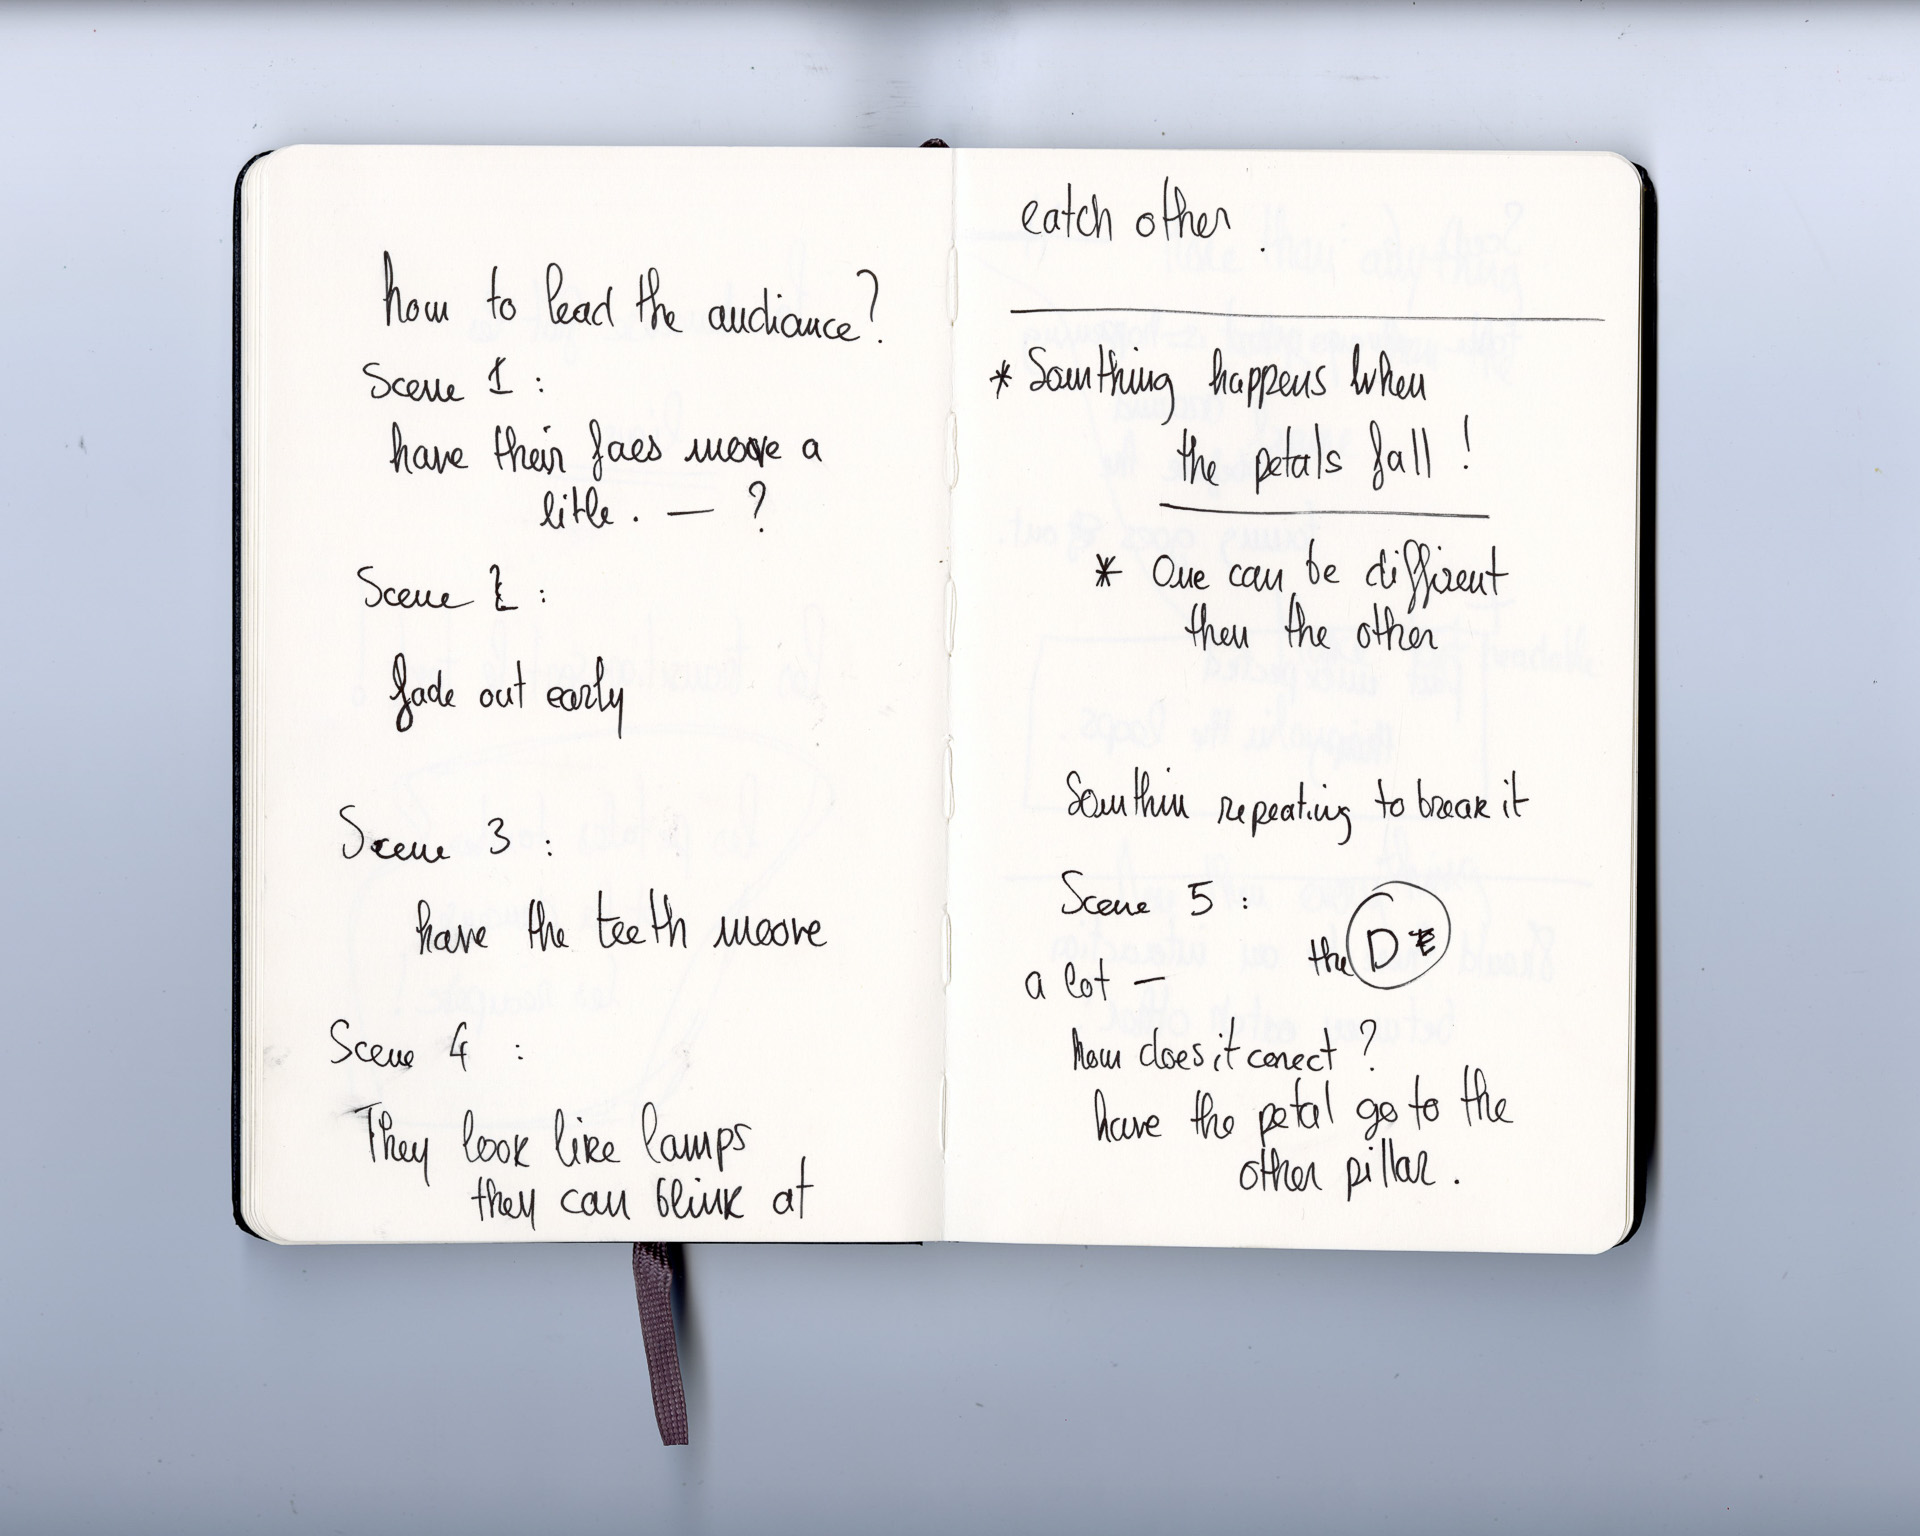 how to lead the audiance?
Scene 1 :
have their faes moove a
litle. — ?
Scene 2 :
fade out early
Scene 3 :
have the teeth moove
Scene 4 :
They look like lamps
they can blink at
eatch other.
* Somthing happens when
the petals fall !
* One can be diffirent
then the other
Somthin repeating to break it
Scene 5 :
the D
a lot —
how does it conect ?
have the petal go to the
other pillar.